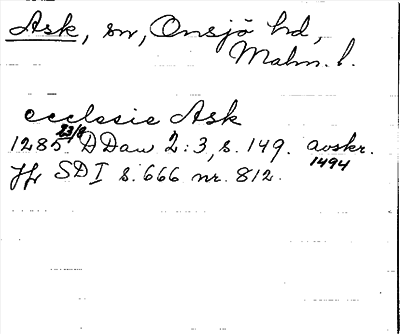 Ask, sn, Onsjö hd,
Malm. l.
ecclesie Ask
1285 23/8 DDan 2:3, s. 149. avskr.
1494
Jfr SD I s. 666 nr. 812.